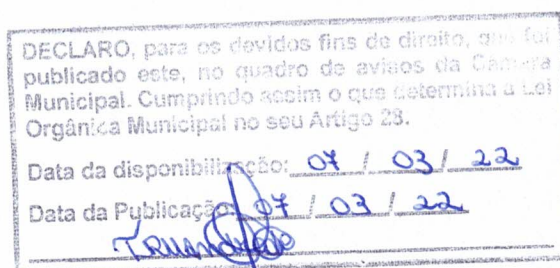 DECLARO, para os devidos fins de direito, que foi
publicado este, no quadro de avisos da Câmara
Municipal. Cumprindo assim o que determina a Lei
Orgânica Municipal no seu Artigo 28.
Data da disponibilização: 07 / 03 / 22
Data da Publicação: 07 / 03 / 22